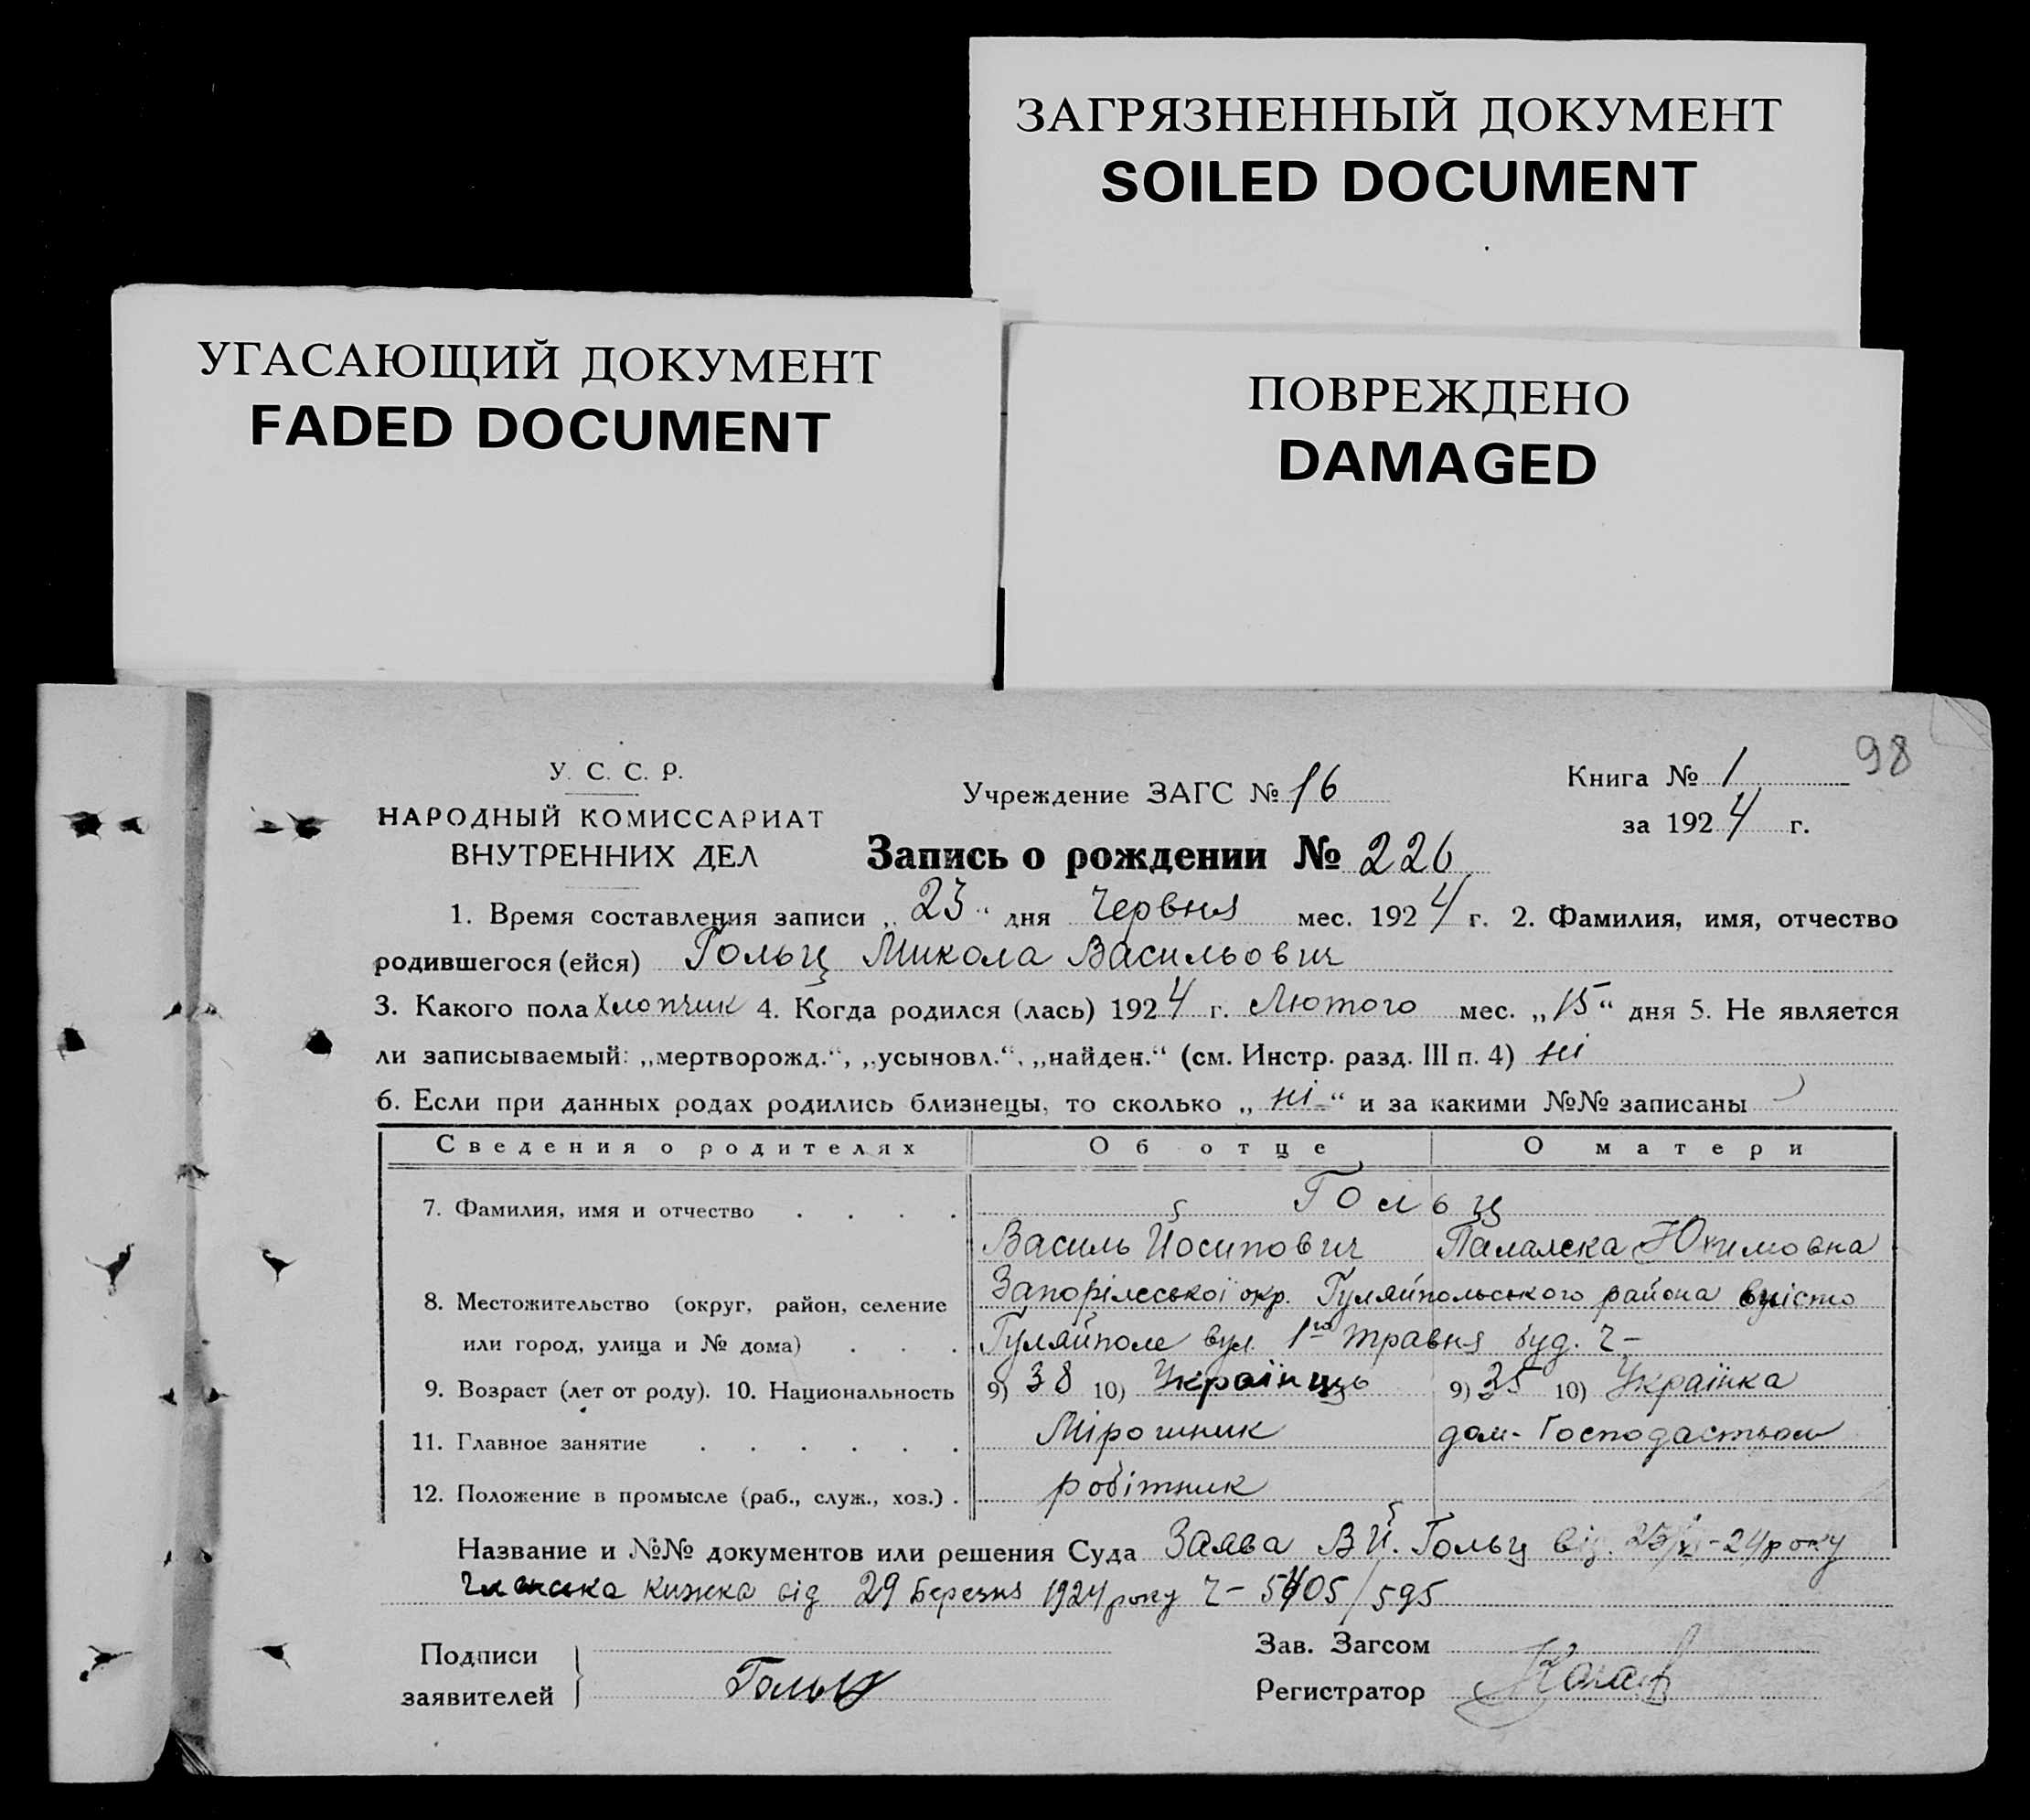 ЗАГРЯЗНЕННЫЙ ДОКУМЕНТ
SOILED DOCUMENT
УГАСАЮЩИЙ ДОКУМЕНТ
FADED DOCUMENT
ПОВРЕЖДЕНО
DAMAGED
98
У. С. С. Р.
НАРОДНЫЙ КОМИССАРИАТ
ВНУТРЕННИХ ДЕЛ
Учреждение ЗАГС № 16
Книга № 1
за 1924 г.
Запись о рождении № 226
1. Время составления записи „23“ дня Червня мес. 1924 г. 2. Фамилия, имя, отчество
родившегося (ейся) Гольц Микола Васильович
3. Какого пола Хлопчик 4. Когда родился (лась) 1924 г. Лютого мес. „15“ дня 5. Не является
ли записываемый: „мертворожд.“, „усыновл.“, „найден.“ (см. Инстр. разд. III п. 4) ні
6. Если при данных родах родились близнецы, то сколько „ні“ и за какими №№ записаны
Сведения о родителях Об отце О матери
7. Фамилия, имя и отчество . . . . Гольц
Василь Йосипович Палажка Юхимовна
8. Местожительство (округ, район, селение Запоріжської окр. Гуляйпольського района місто
или город, улица и № дома) . . . Гуляйполе вул. 1го травня буд. ч–
9. Возраст (лет от роду). 10. Национальность 9) 38 10) Українць 9) 35 10) Українка
11. Главное занятие . . . . . . Мірошник дом- Господаством
12. Положение в промысле (раб., служ., хоз.) . робітник
Название и №№ документов или решения Суда Заява В Й. Гольц від -24 року
книжка від 29 Березня 1924 року ч – 5405/595
Подписи
заявителей } Гольц
Зав. Загсом
Регистратор